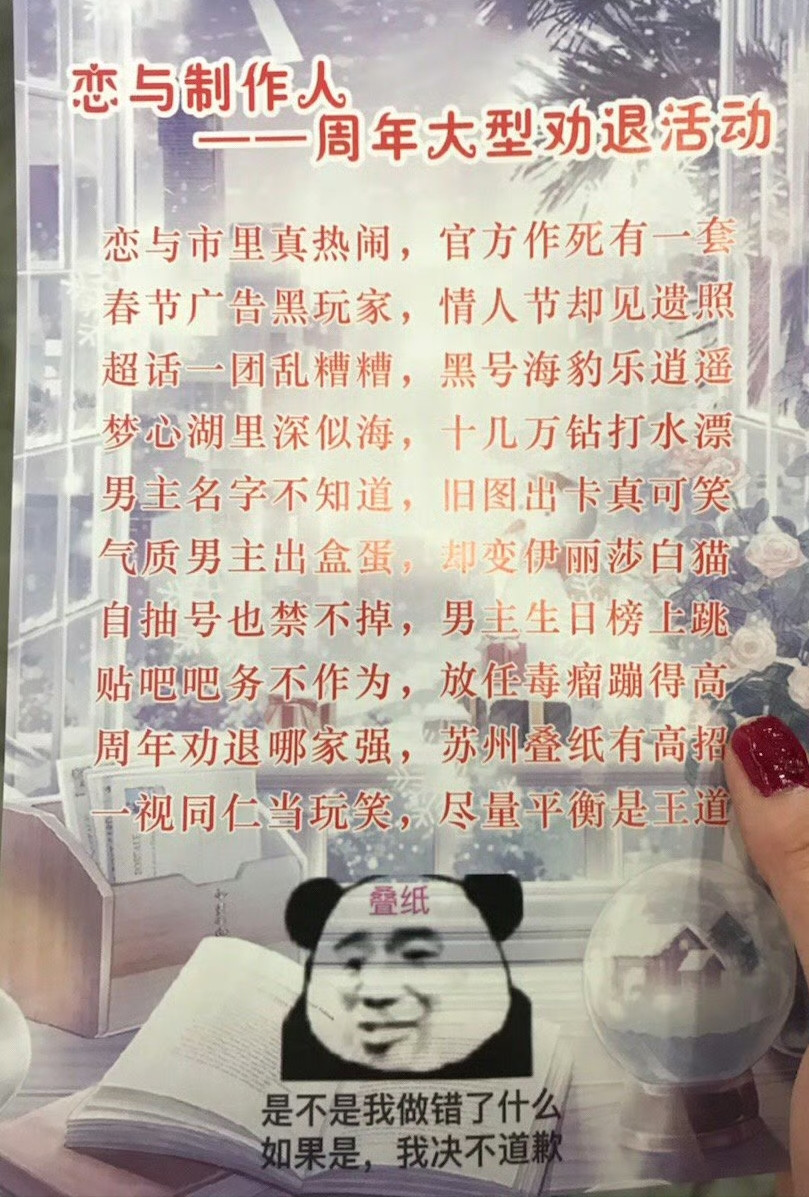 恋与制作人
——周年大型劝退活动
恋与市里真热闹，官方作死有一套
春节广告黑玩家，情人节却见遗照
超话一团乱糟糟，黑号海豹乐逍遥
梦心湖里深似海，十几万钻打水漂
男主名字不知道，旧图出卡真可笑
气质男主出盒蛋，却变伊丽莎白猫
自抽号也禁不掉，男主生日榜上跳
贴吧吧务不作为，放任毒瘤蹦得高
周年劝退哪家强，苏州叠纸有高招
一视同仁当玩笑，尽量平衡是王道
叠纸
是不是我做错了什么
如果是，我决不道歉